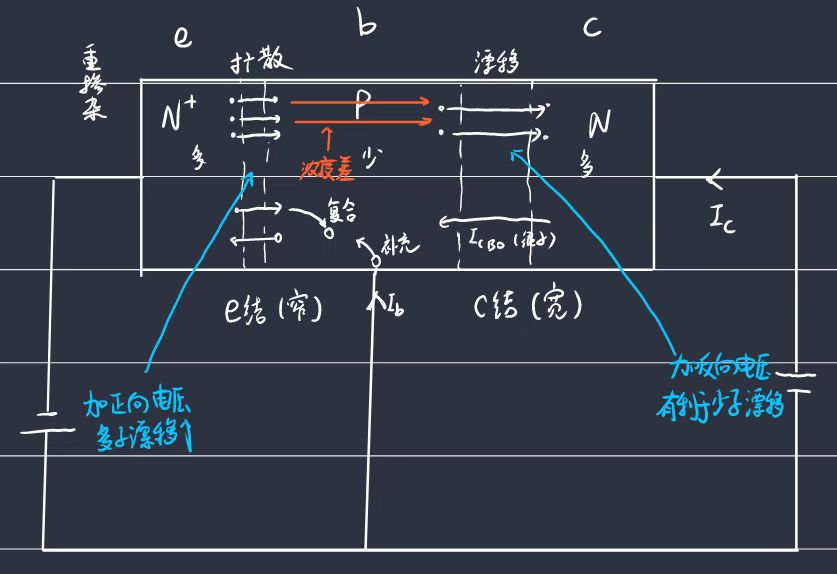 e
b
c
重掺杂
扩散
漂移
N+
P
N
多
浓度差
少
多
复合
补充
ICBO (得子)
IC
e结(窄)
Ib
C结(宽)
加正向电压
多子漂移↑
加反向电压
有利于少子漂移